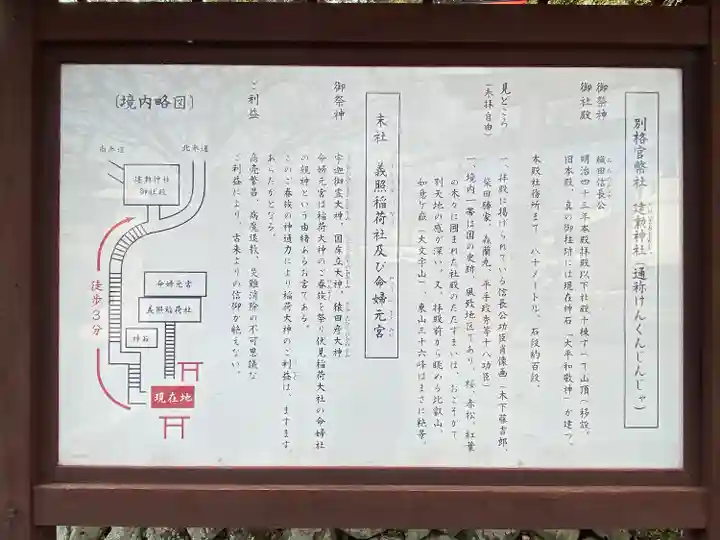 別格官幣社 建勲神社(通称けんくんじんじゃ)
御祭神 織田信長公
御社殿 明治四十三年本殿拝殿以下社殿十棟すべて山頂へ移設。
旧本殿、真の御柱跡には現在神石「大平和敬神」が建つ。
本殿社務所まで 八十メートル、石段約百段。
見どころ
(参拝自由)
一、拝殿に掲げられている信長公功臣肖像画(木下藤吉郎、
柴田勝家、森蘭丸、平手政秀等十八功臣)
一、境内一帯は国の史跡、風致地区であり、桜、赤松、紅葉
の木々に囲まれた社殿のたたずまいは、おごそかで
別天地の感が深い。又、拝殿前から眺める比叡山、
如意ヶ嶽(大文字山)、東山三十六峰はまさに絶景。
末社 義照稲荷社及び命婦元宮
御祭神 宇迦御霊大神、国床立大神、猿田彦大神
命婦元宮は稲荷大神のご眷族を祭り伏見稲荷大社の命婦社
の親神という由緒あるお宮である。
このご眷族の神通力により稲荷大神のご利益は、ますます
あらたかとなる。
ご利益 商売繁昌、病魔退散、災難消除の不可思議な
ご利益により、古来よりの信仰が絶えない。
〔境内略図〕
北参道
南参道
建勲神社
御社殿
命婦元宮
義照稲荷社
神石
徒歩3分
現在地